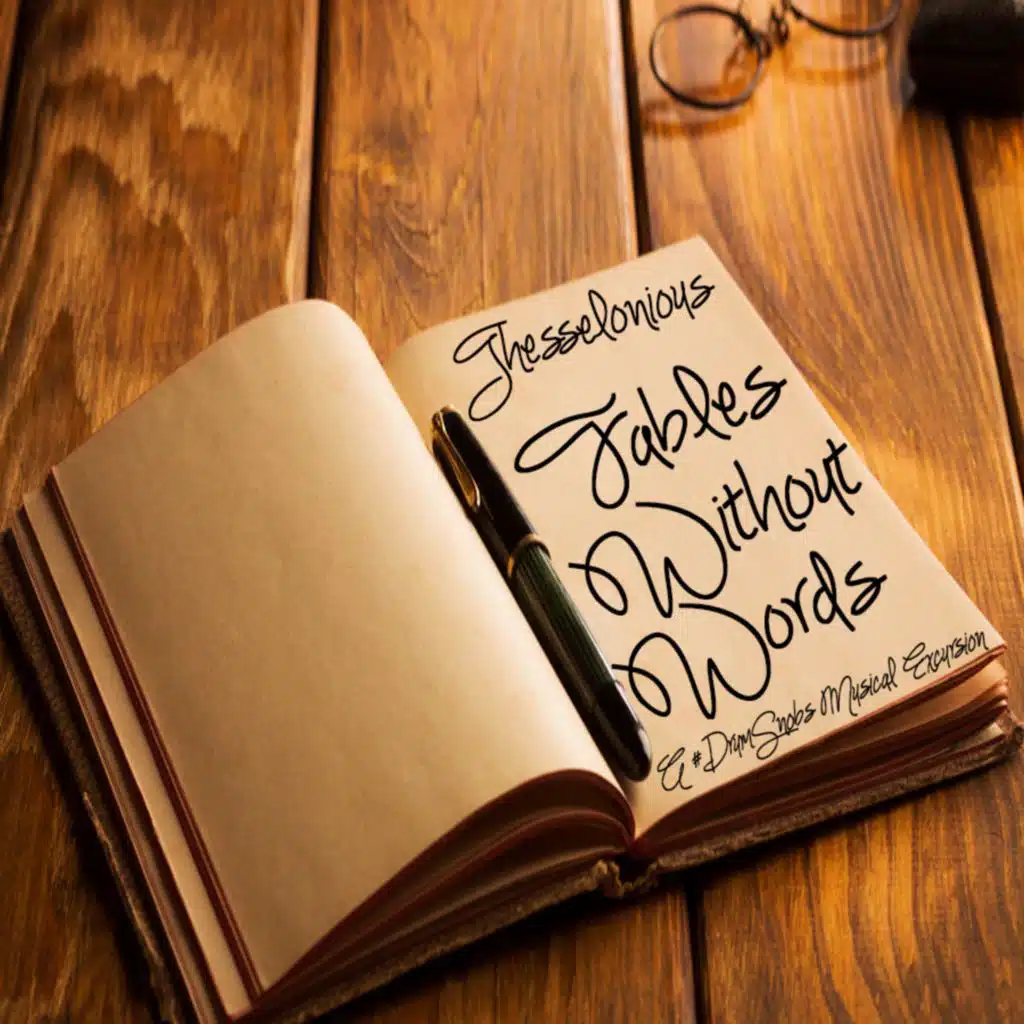 Thesselonious
Fables
Without
Words
A #DrumSnobs Musical Excursion